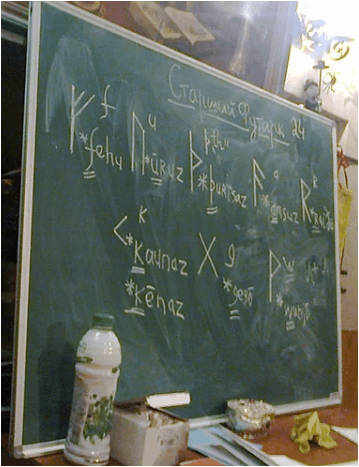 Старший Футарк 24
ᚠ f ᚢ u ᚦ þ"th" ᚨ a ᚱ R
*fehu *ūruz *þurisaz *ansuz
ᚲ K ᚷ g ᚹ w
*kaunaz *gebō *wunjō
*kēnaz